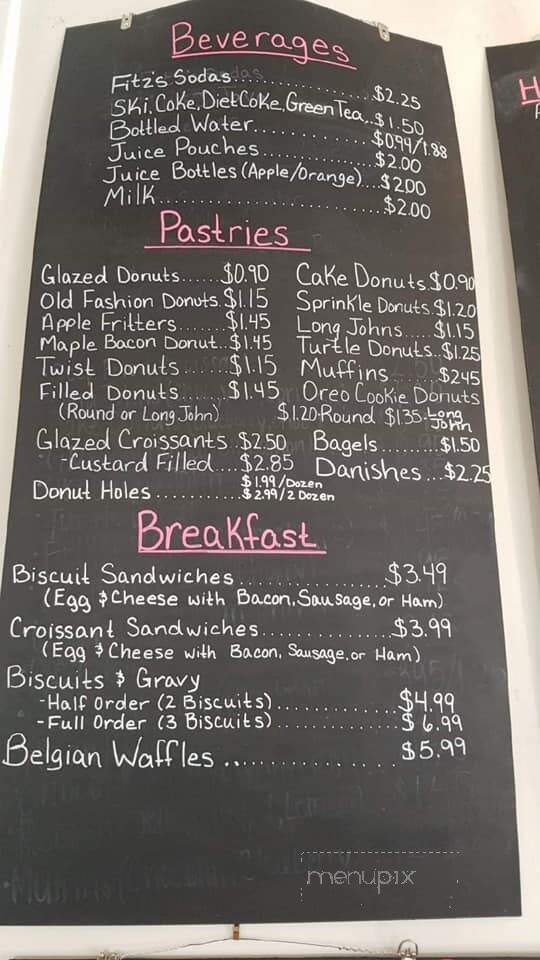 Beverages
Fitz's Sodas..............$2.25
Ski, Coke, Diet Coke, Green Tea..$1.50
Bottled Water..............$0.94/1.88
Juice Pouches..............$2.00
Juice Bottles (Apple/Orange)...$2.00
Milk..............$2.00
Pastries
Glazed Donuts......$0.90
Old Fashion Donuts.$1.15
Apple Fritters.......$1.45
Maple Bacon Donut..$1.45
Twist Donuts.......$1.15
Filled Donuts.......$1.45
(Round or Long John)
Glazed Croissants..$2.50
-Custard Filled....$2.85
Donut Holes..........$1.99/Dozen
$2.99/2 Dozen
Cake Donuts $0.90
Sprinkle Donuts.$1.20
Long Johns.....$1.15
Turtle Donuts..$1.25
Muffins.......$2.45
Oreo Cookie Donuts
$1.20-Round $1.35-Long John
Bagels.........$1.50
Danishes...$2.25
Breakfast
Biscuit Sandwiches..............$3.49
(Egg & Cheese with Bacon, Sausage, or Ham)
Croissant Sandwiches..............$3.99
(Egg & Cheese with Bacon, Sausage, or Ham)
Biscuits & Gravy
-Half Order (2 Biscuits)..............$4.99
-Full Order (3 Biscuits)..............$6.99
Belgian Waffles..............$5.99
H
menupix